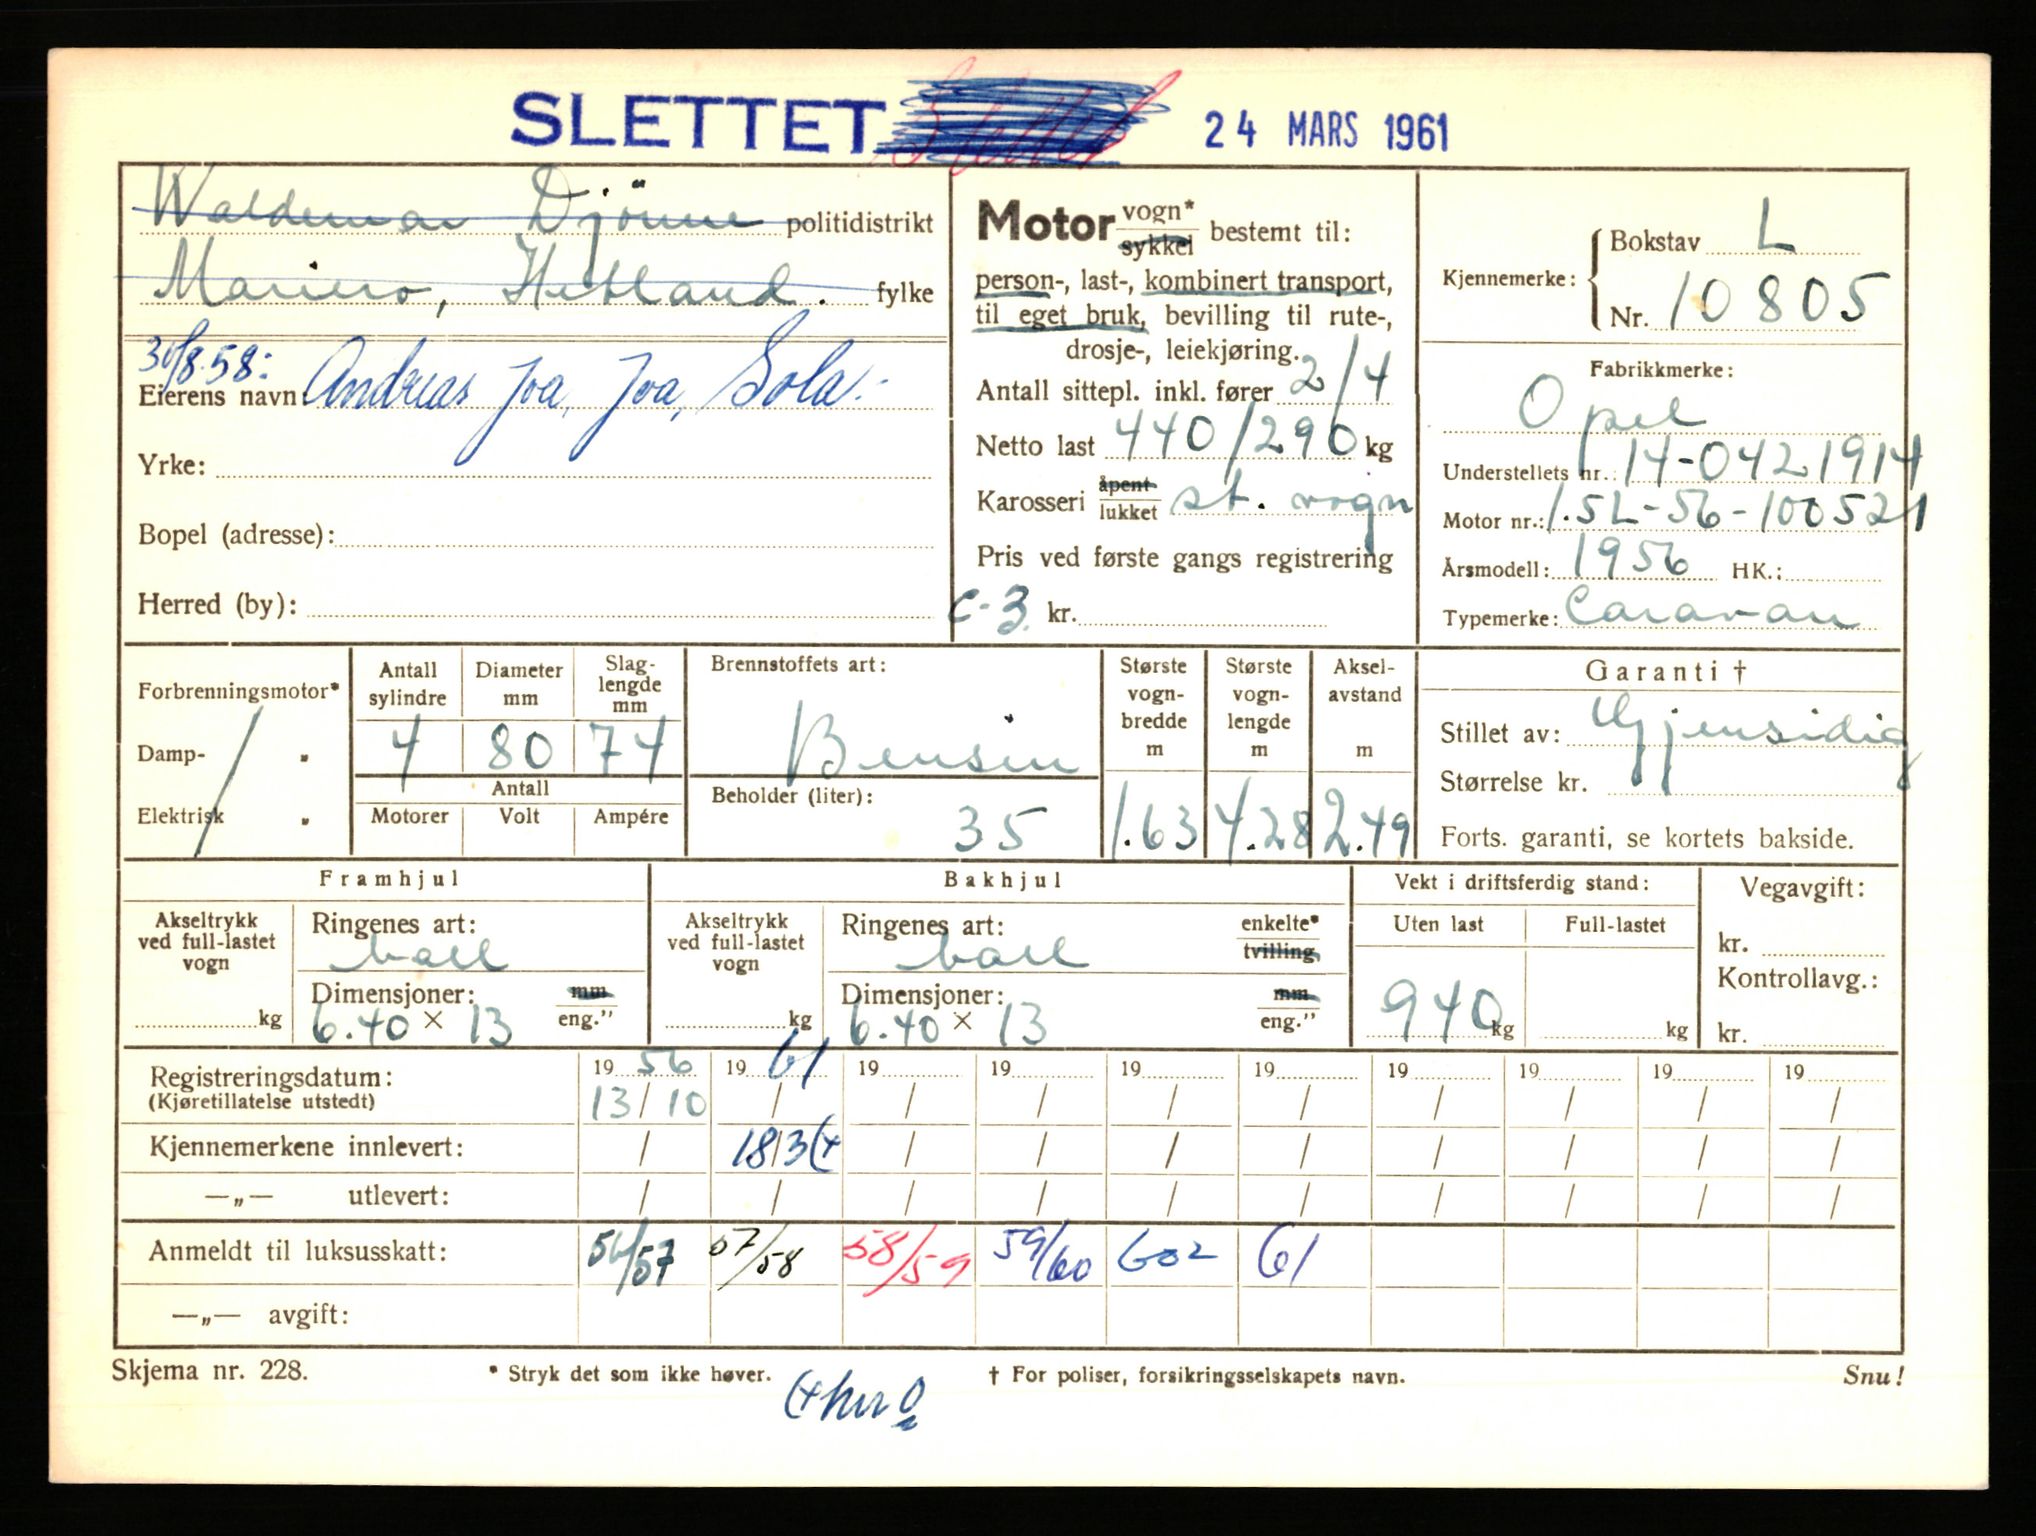 SLETTET 24 MARS 1961
Waldemar Djönne politidistrikt
Mariero, Hetland. fylke
30/8.58:
Eierens navn Andreas Joa, Joa, Sola.
Yrke:
Bopel (adresse):
Herred (by):
Motor vogn* sykkel bestemt til:
person-, last-, kombinert transport,
til eget bruk, bevilling til rute-,
drosje-, leiekjøring.
Antall sittepl. inkl. fører 2/4
Netto last 440/290 kg
Karosseri åpent lukket st. vogn
Pris ved første gangs registrering
c-3 kr.
Kjennemerke: Bokstav L
Nr. 10805
Fabrikkmerke:
Opel
Understellets nr.: 14-0421914
Motor nr.: 1.5L-56-100521
Årsmodell: 1956 HK.:
Typemerke: Caravan
Forbrenningsmotor*
Damp- „
Elektrisk „
Antall sylindre Diameter mm Slag-lengde mm
4 80 74
Antall
Motorer Volt Ampére
Brennstoffets art:
Bensin
Beholder (liter):
35
Største vogn-bredde m Største vogn-lengde m Aksel-avstand m
1.63 4.28 2.49
Garanti †
Stillet av: Gjensidig
Størrelse kr.
Forts. garanti, se kortets bakside.
Framhjul
Akseltrykk ved full-lastet vogn
kg
Ringenes art:
ball
Dimensjoner: mm
6.40 × 13 eng.”
Bakhjul
Akseltrykk ved full-lastet vogn
kg
Ringenes art: enkelte*
ball tvilling
Dimensjoner: mm
6.40 × 13 eng.”
Vekt i driftsferdig stand:
Uten last Full-lastet
940 kg kg
Vegavgift:
kr.
Kontrollavg.:
kr.
Registreringsdatum: 19 56 19 61 19 19 19 19 19 19 19 19
(Kjøretillatelse utstedt) 13/10 / / / / / / / / /
Kjennemerkene innlevert: / 18/3 (+ / / / / / / / /
—„— utlevert: / / / / / / / / / /
Anmeldt til luksusskatt: 56/57 57/58 58/59 59/60 602 61
—„— avgift:
Skjema nr. 228. * Stryk det som ikke høver. † For poliser, forsikringsselskapets navn. Snu!